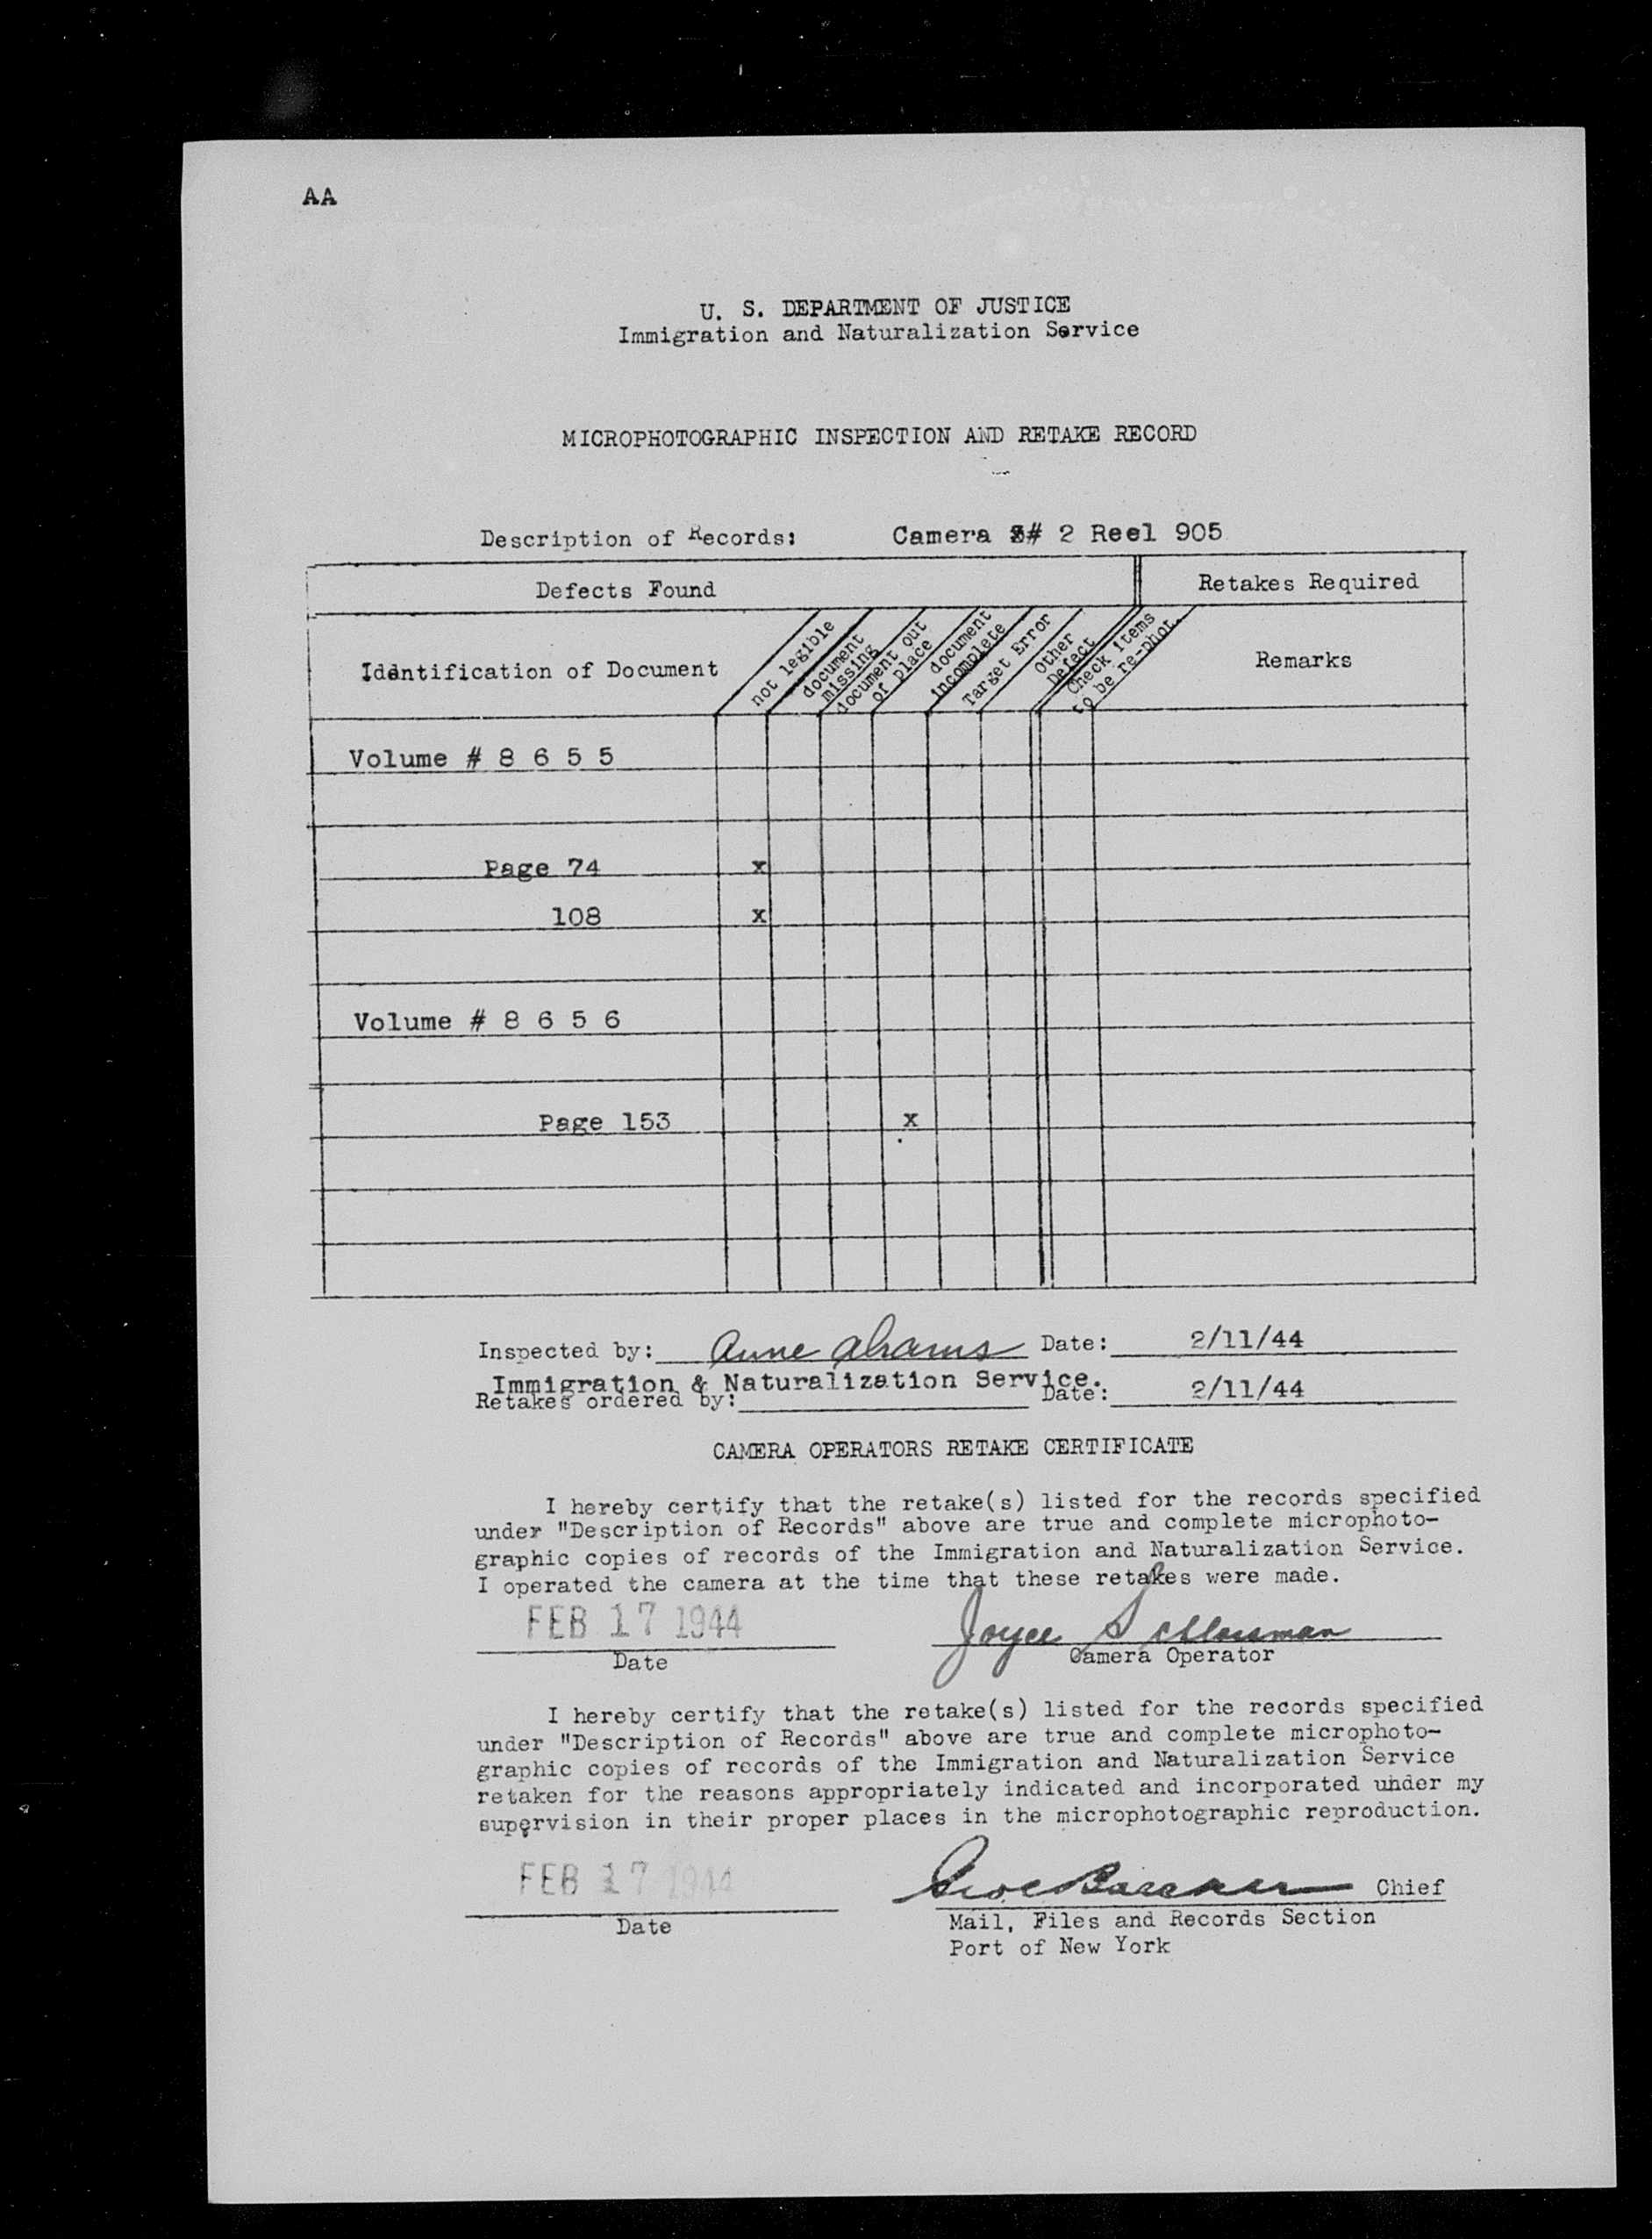 AA
U. S. DEPARTMENT OF JUSTICE
Immigration and Naturalization Service
MICROPHOTOGRAPHIC INSPECTION AND RETAKE RECORD
Description of Records: Camera # 2 Reel 905
Defects Found Retakes Required
Identification of Document
not legible
document
missing
document out
of place
document
incomplete
Target Error
Other
Defect
Check items
to be re-phot.
Remarks
Volume # 8 6 5 5
Page 74 x
108 x
Volume # 8 6 5 6
Page 153 x
Inspected by: Anne Abrams Date: 2/11/44
Immigration & Naturalization Service.
Retakes ordered by: Date: 2/11/44
CAMERA OPERATORS RETAKE CERTIFICATE
I hereby certify that the retake(s) listed for the records specified
under "Description of Records" above are true and complete microphoto-
graphic copies of records of the Immigration and Naturalization Service.
I operated the camera at the time that these retakes were made.
FEB 17 1944 Joyce
Date Camera Operator
I hereby certify that the retake(s) listed for the records specified
under "Description of Records" above are true and complete microphoto-
graphic copies of records of the Immigration and Naturalization Service
retaken for the reasons appropriately indicated and incorporated under my
supervision in their proper places in the microphotographic reproduction.
FEB 17 1944 Chief
Date Mail, Files and Records Section
Port of New York